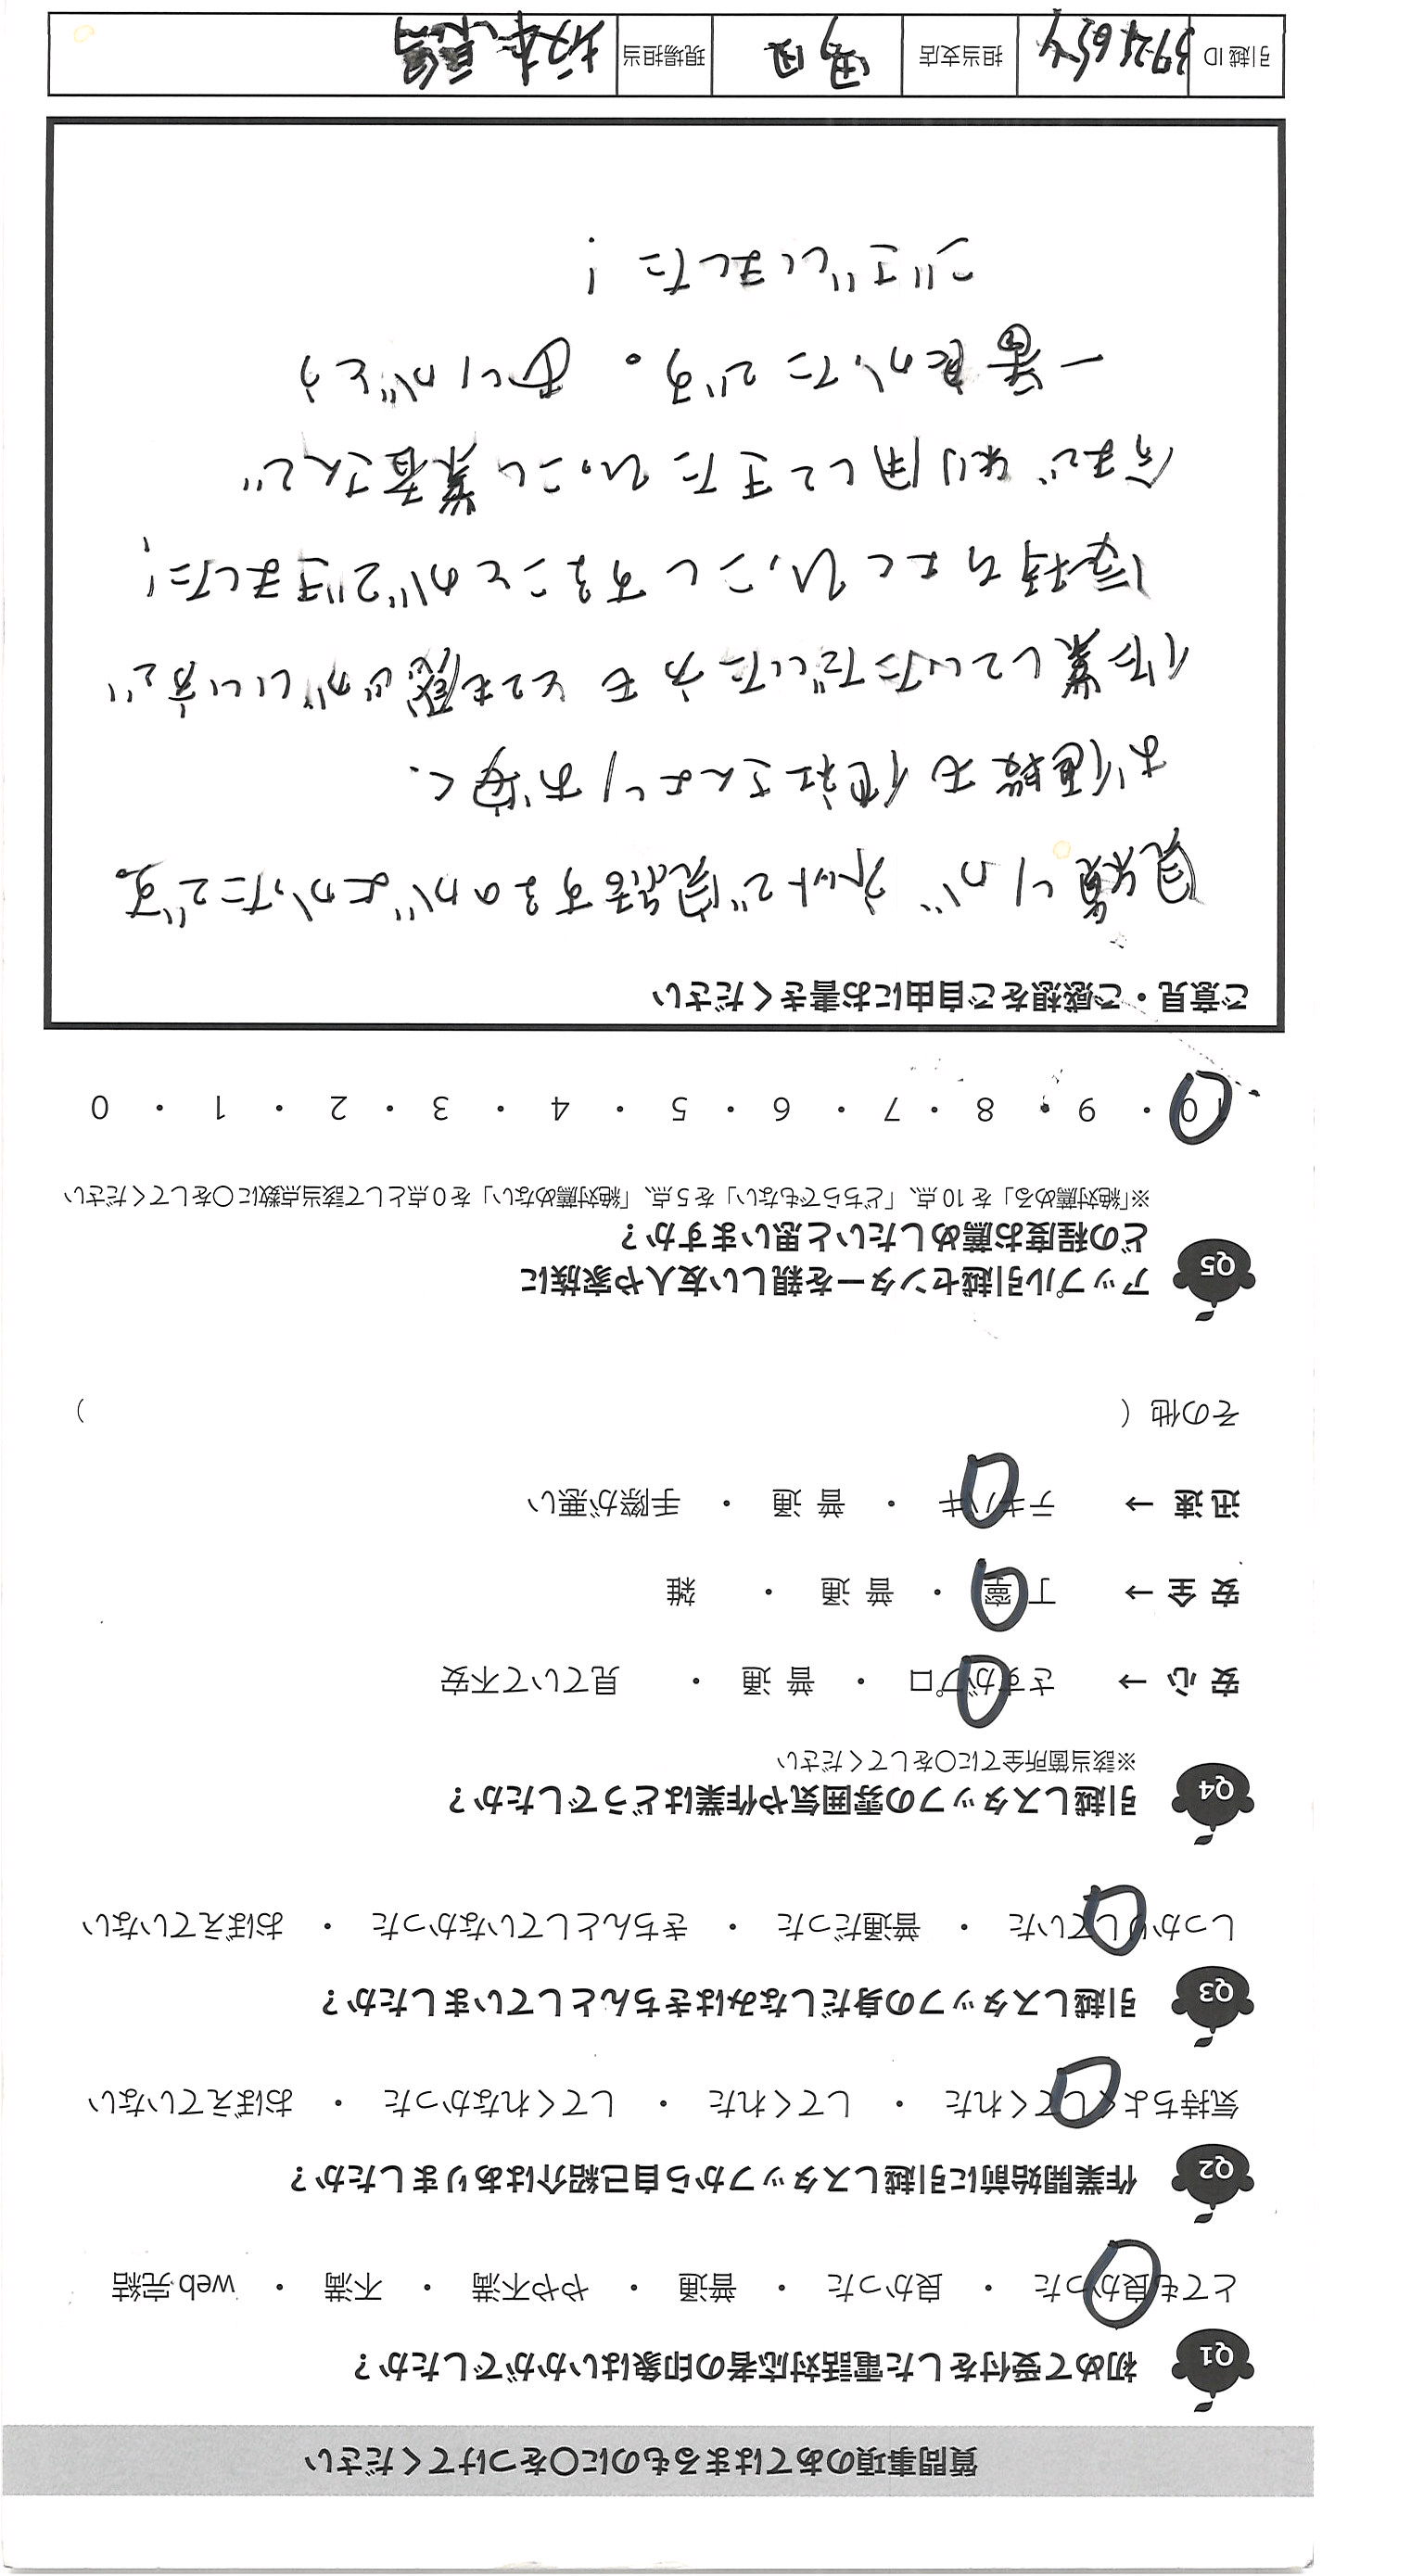 質問事項のあてはまるものに○をつけてください
Q1 初めて受付をした電話対応者の印象はいかがでしたか？
とても良かった ・ 良かった ・ 普通 ・ やや不満 ・ 不満 ・ web完結
Q2 作業開始前に引越しスタッフから自己紹介はありましたか？
気持ちよくしてくれた ・ してくれた ・ してくれなかった ・ おぼえていない
Q3 引越しスタッフの身だしなみはきちんとしていましたか？
しっかりしていた ・ 普通だった ・ きちんとしていなかった ・ おぼえていない
Q4 引越しスタッフの雰囲気や作業はどうでしたか？
※該当箇所全てに○をしてください
安心 → さすがプロ ・ 普通 ・ 見ていて不安
安全 → 丁寧 ・ 普通 ・ 雑
迅速 → テキパキ ・ 普通 ・ 手際が悪い
その他（ ）
Q5 アップル引越センターを親しい友人や家族に
どの程度お薦めしたいと思いますか？
※「絶対薦める」を10点、「どちらでもない」を5点、「絶対薦めない」を0点として該当点数に○をしてください
10 ・ 9 ・ 8 ・ 7 ・ 6 ・ 5 ・ 4 ・ 3 ・ 2 ・ 1 ・ 0
ご意見・ご感想をご自由にお書きください
見積りが ネットで完結するのがよかったです。
お値段も他社さんよりお安く、
作業していただいた方もとても感じがいい方で
気持ちよくひっこしすることができました！
今まで利用してきたひっこし業者さんで
一番良かったです。ありがとう
ございました！
引越ID 担当支店 現場担当